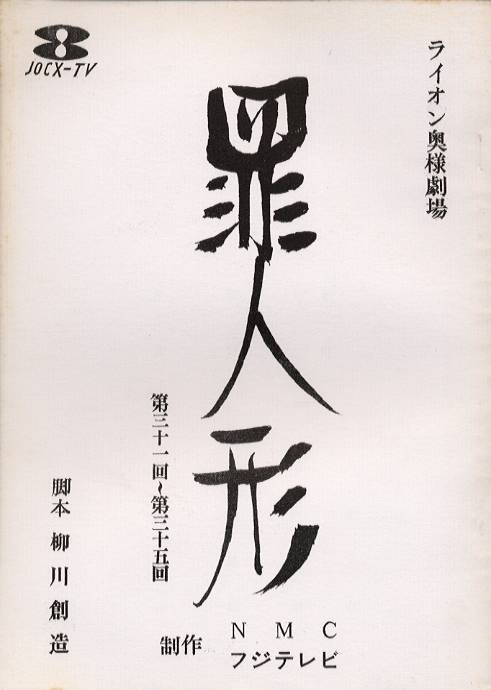 JOCX-TV
ライオン奥様劇場
罪人形
第三十一回~第三十五回
脚本 柳川創造
制作 NMC
フジテレビ